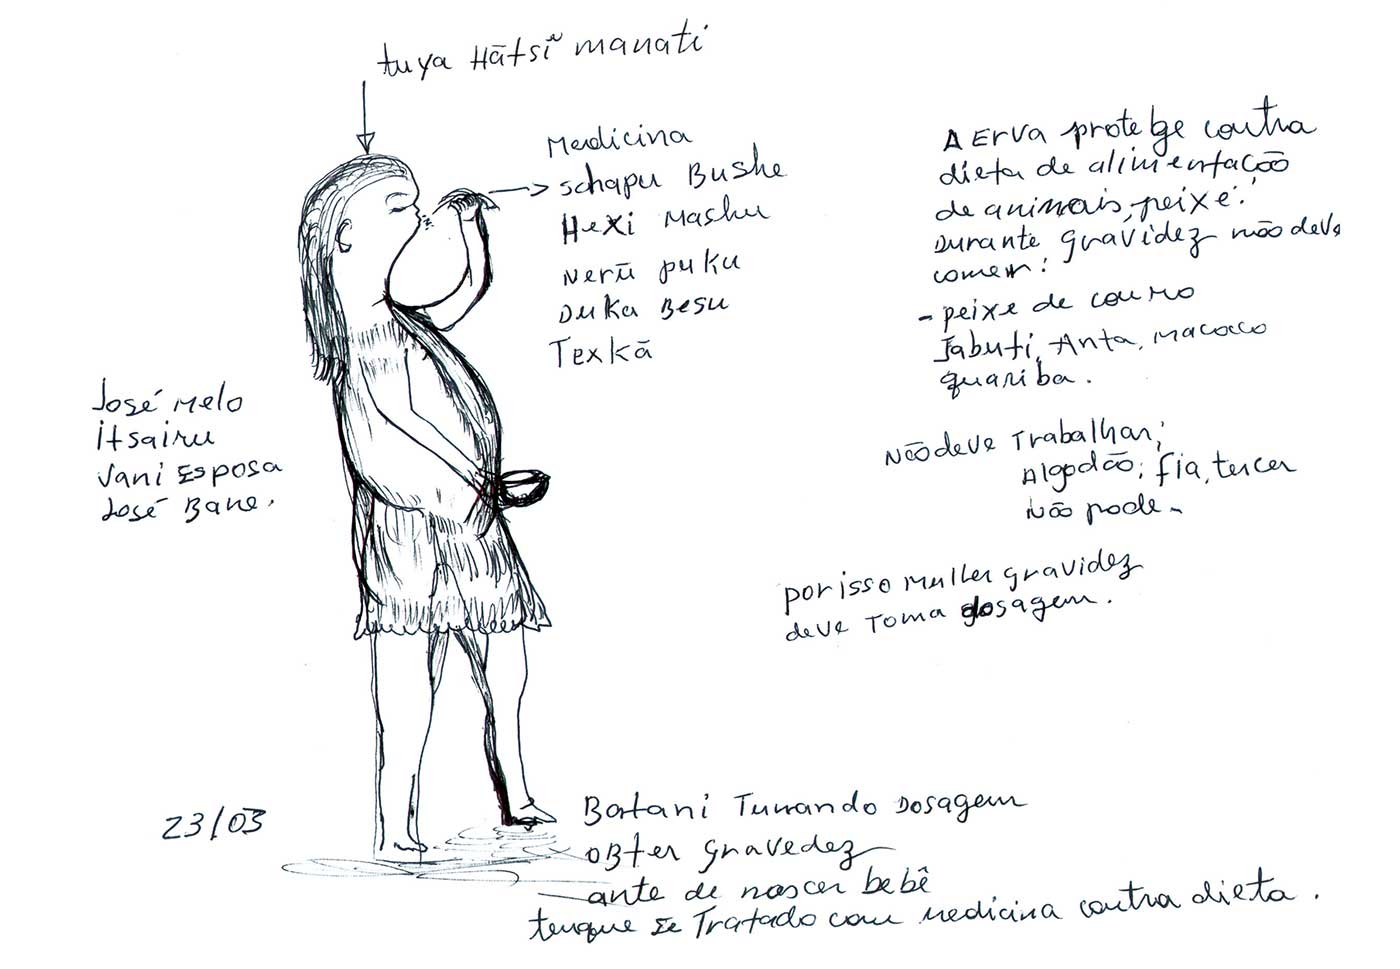 tuya Hãtsĩ manati
Medicina
schapu Bushe
Hexi Mashu
Nerũ puku
Duka Besu
Texkã
A ERVA protege contra
dieta de alimentação
de animais, peixe:
Durante gravidez não deve
comer:
- peixe de couro
Jabuti, Anta, macacco
guariba.
Não deve Trabalhar;
Algodão; fia, tercer
Não pode -
José Melo
Itsairu
Vani Esposa
José Bane.
por isso muller gravidez
deve Toma dosagem.
23/03
Batani Tumando Dosagem
OBter gravedez
ante de nascer bebê
tenque se Tratado com medicina contra dieta.